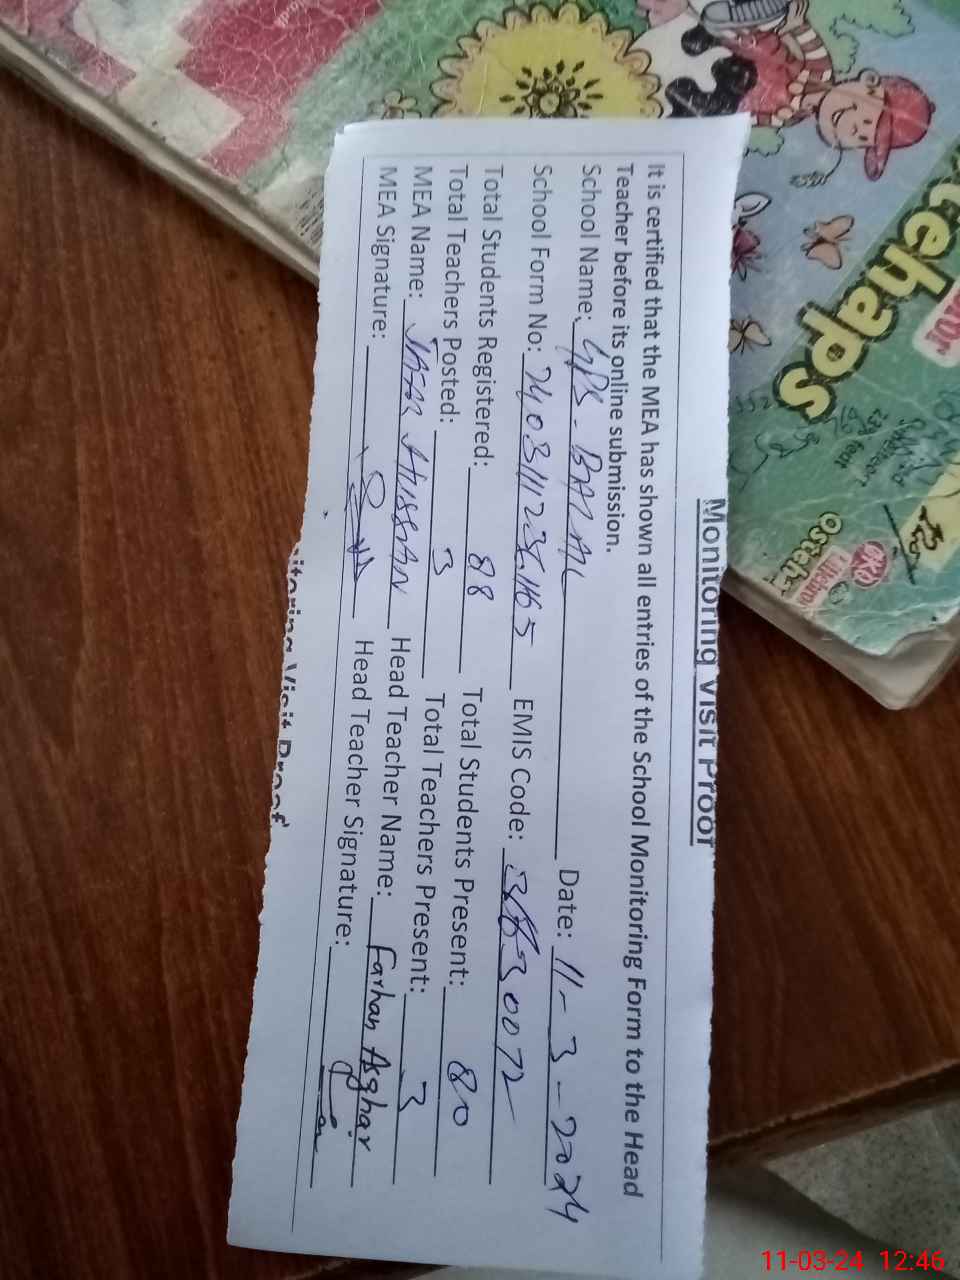 Monitoring Visit Proof
It is certified that the MEA has shown all entries of the School Monitoring Form to the Head
Teacher before its online submission.
School Name: GPS - Date: 11-3-2024
School Form No: EMIS Code:
Total Students Registered: 88 Total Students Present: 80
Total Teachers Posted: 3 Total Teachers Present: 3
MEA Name: Hussain Head Teacher Name: Farhan Asghar
MEA Signature: Head Teacher Signature:
Visit Proof
tehaps
125
OKO
11-03-24 12:46